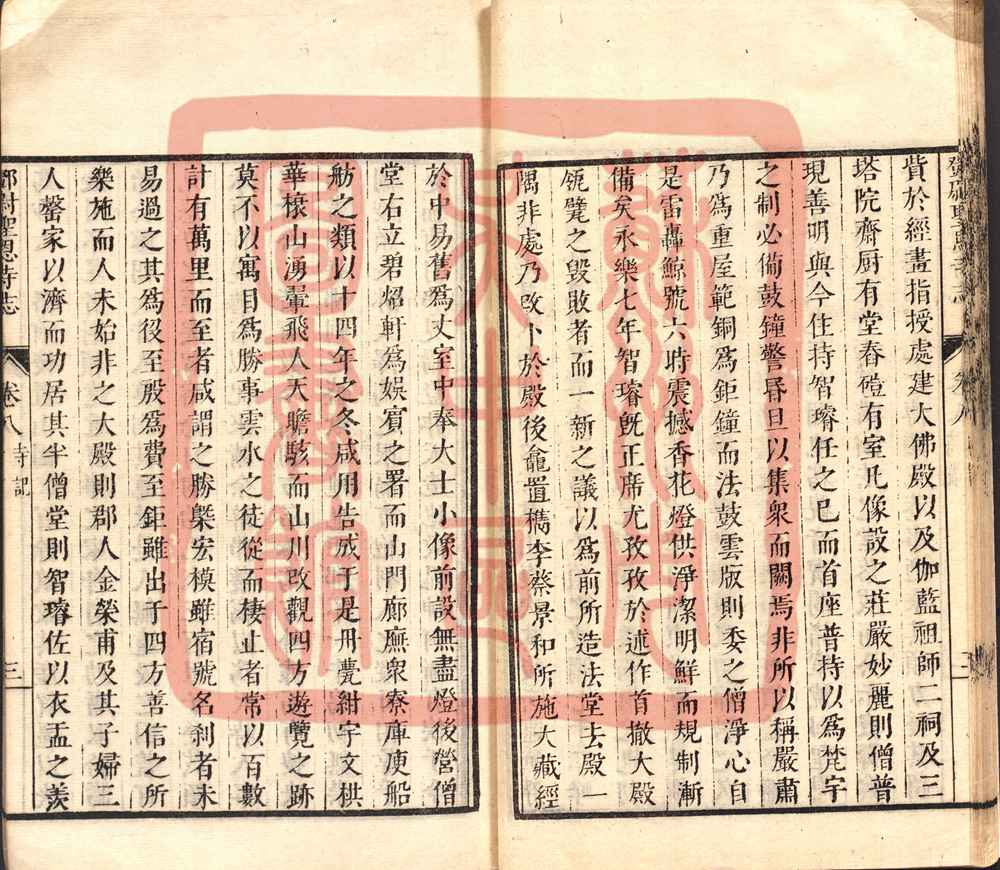 貲於經畫指授處建大佛殿以及伽藍祖師二祠及三
塔院齋厨有堂舂磑有室凡像設之莊嚴妙麗則僧普
現善明與今住持智璿任之已而首座普持以爲梵宇
之制必僃鼓鐘警昏旦以集衆而闕焉非所以稱嚴肅
乃爲重屋範銅爲鉅鐘而法鼓雲版則委之僧淨心自
是雷轟鯨號六時震撼香花燈供淨潔明鮮而規制漸
備矣永樂七年智璿旣正席尤孜孜於述作首撤大殿
瓴甓之毁敗者而一新之議以爲前所造法堂去殿一
隅非處乃改卜於殿後龕置檇李蔡景和所施大藏經
於中易舊爲丈室中奉大士小像前設無盡燈後營僧
堂右立碧焰軒爲娛賓之署而山門廊廡衆寮庫庾船
舫之類以十四年之冬咸用告成于是冊甍紺宇文栱
華榱山湧翬飛人天瞻駭而山川改觀四方遊覽之跡
莫不以寓目爲勝事雲水之徒從而棲止者常以百數
計有萬里而至者咸謂之勝槩宏模雖宿號名刹者未
易過之其爲役至殷爲費至鉅雖出于四方善信之所
樂施而人未始非之大殿則郡人金榮甫及其子婦三
人罄家以濟而功居其半僧堂則智璿佐以衣盂之羡
鄧尉聖恩寺志 卷八 寺記 三